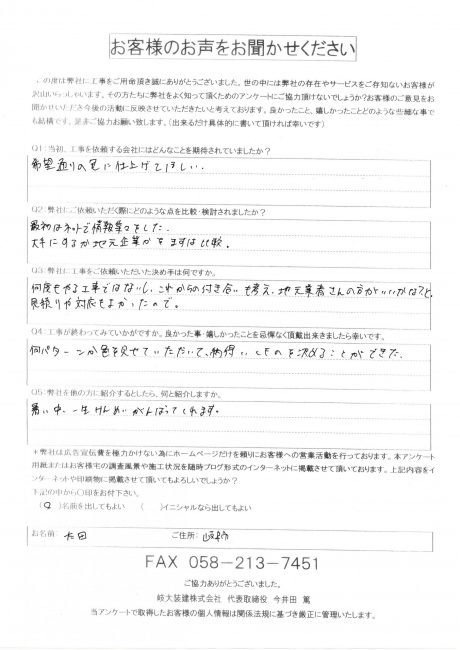 お客様のお声をお聞かせください
この度は弊社に工事をご用命頂き誠にありがとうございました。世の中には弊社の存在やサービスをご存知ないお客様が
沢山いらっしゃいます。その方たちに弊社をよく知って頂くためのアンケートにご協力頂けないでしょうか?お客様のご意見をお
聞かせいただき今後の活動に反映させていただきたいと考えております。良かったこと、嬉しかったことどのような些細な事で
も結構です。是非ご協力お願い致します。(出来るだけ具体的に書いて頂ければ幸いです)
Q1:当初、工事を依頼する会社にはどんなことを期待されていましたか?
希望通りの色に仕上げてほしい.
Q2:弊社にご依頼いただく際にどのような点を比較・検討されましたか?
最初はネットで情報集めをした.
大手にするか地元企業かをまずは比較。
Q3:弊社に工事をご依頼いただいた決め手は何ですか。
何度もやる工事ではないし、これからの付き合いも考え、地元業者さんの方がいいかな?と.
見積りや対応もよかったので。
Q4:工事が終わってみていかがですか。良かった事・嬉しかったことを忌憚なく頂戴出来ましたら幸いです。
何パターンか色を見せていただいて、納得いくものを決めることができた.
Q5:弊社を他の方に紹介するとしたら、何と紹介しますか。
暑い中、一生けんめいがんばってくれます。
＊弊社は広告宣伝費を極力かけない為にホームページだけを頼りにお客様への営業活動を行っております。本アンケート
用紙またはお客様宅の調査風景や施工状況を随時ブログ形式のインターネットに掲載させて頂いております。上記内容をイ
ンターネットや印刷物に掲載させて頂いてもよろしいでしょうか?
下記の中から〇印をお付下さい。
(〇)名前を出してもよい (　)イニシャルなら出してもよい
お名前: 太田 ご住所: 岐阜市
FAX 058-213-7451
ご協力ありがとうございました。
岐大装建株式会社 代表取締役 今井田 篤
当アンケートで取得したお客様の個人情報は関係法規に基づき厳正に管理いたします。